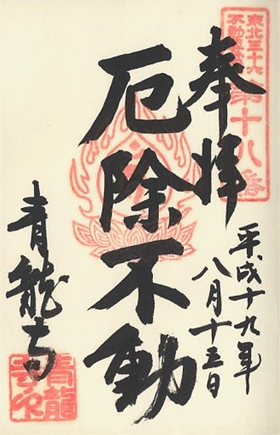 東北三十六
不動尊霊場
第十八番
奉拝
平成十九年
八月十三日
厄除不動
青龍寺